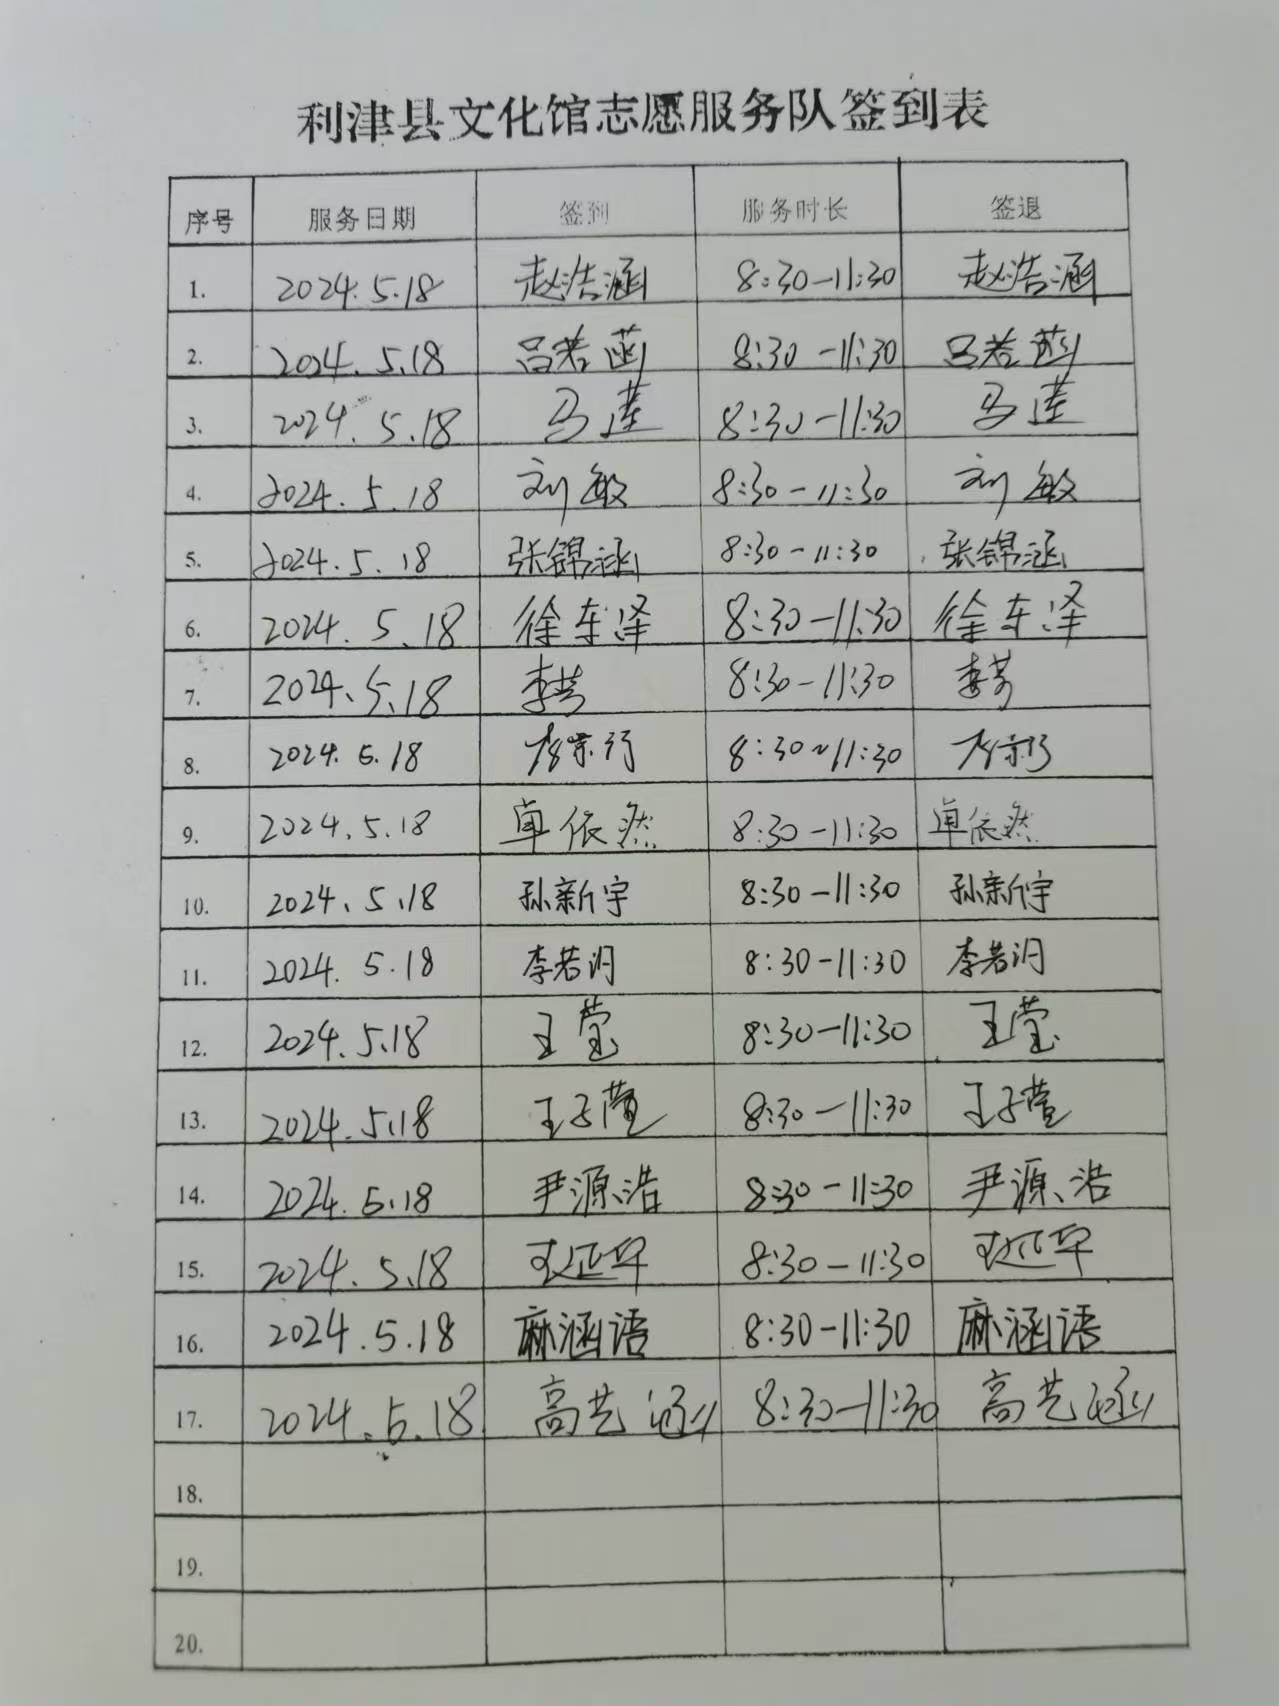 利津县文化馆志愿服务队签到表
序号 服务日期 签到 服务时长 签退
1. 2024.5.18 赵浩涵 8:30-11:30 赵浩涵
2. 2024.5.18 吕若菡 8:30-11:30 吕若菡
3. 2024.5.18 马莲 8:30-11:30 马莲
4. 2024.5.18 刘敏 8:30-11:30 刘敏
5. 2024.5.18 张锦涵 8:30-11:30 张锦涵
6. 2024.5.18 徐东泽 8:30-11:30 徐东泽
7. 2024.5.18 李芳 8:30-11:30 李芳
8. 2024.5.18 8:30~11:30
9. 2024.5.18 卓依然 8:30-11:30 卓依然
10. 2024.5.18 孙新宇 8:30-11:30 孙新宇
11. 2024.5.18 李若汐 8:30-11:30 李若汐
12. 2024.5.18 王莹 8:30-11:30 王莹
13. 2024.5.18 王子萱 8:30-11:30 王子萱
14. 2024.5.18 尹源浩 8:30-11:30 尹源浩
15. 2024.5.18 王延华 8:30-11:30 王延华
16. 2024.5.18 麻涵语 8:30-11:30 麻涵语
17. 2024.5.18 高艺涵 8:30-11:30 高艺涵
18.
19.
20.